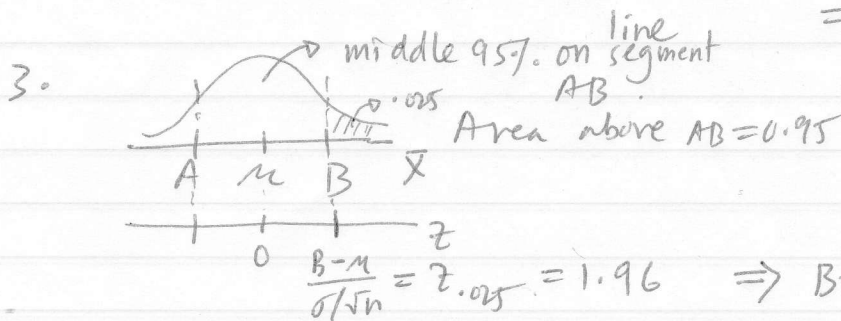 =
line
3. middle 95%. on segment
AB.
.025
Area above AB = 0.95
A μ B X̄
0 z
B-μ / σ/√n = z.025 = 1.96 ⇒ B